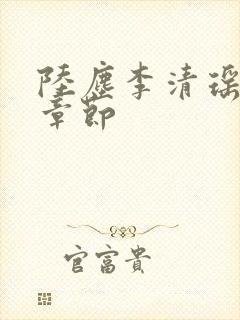 陸塵李清瑤
章節
官富貴